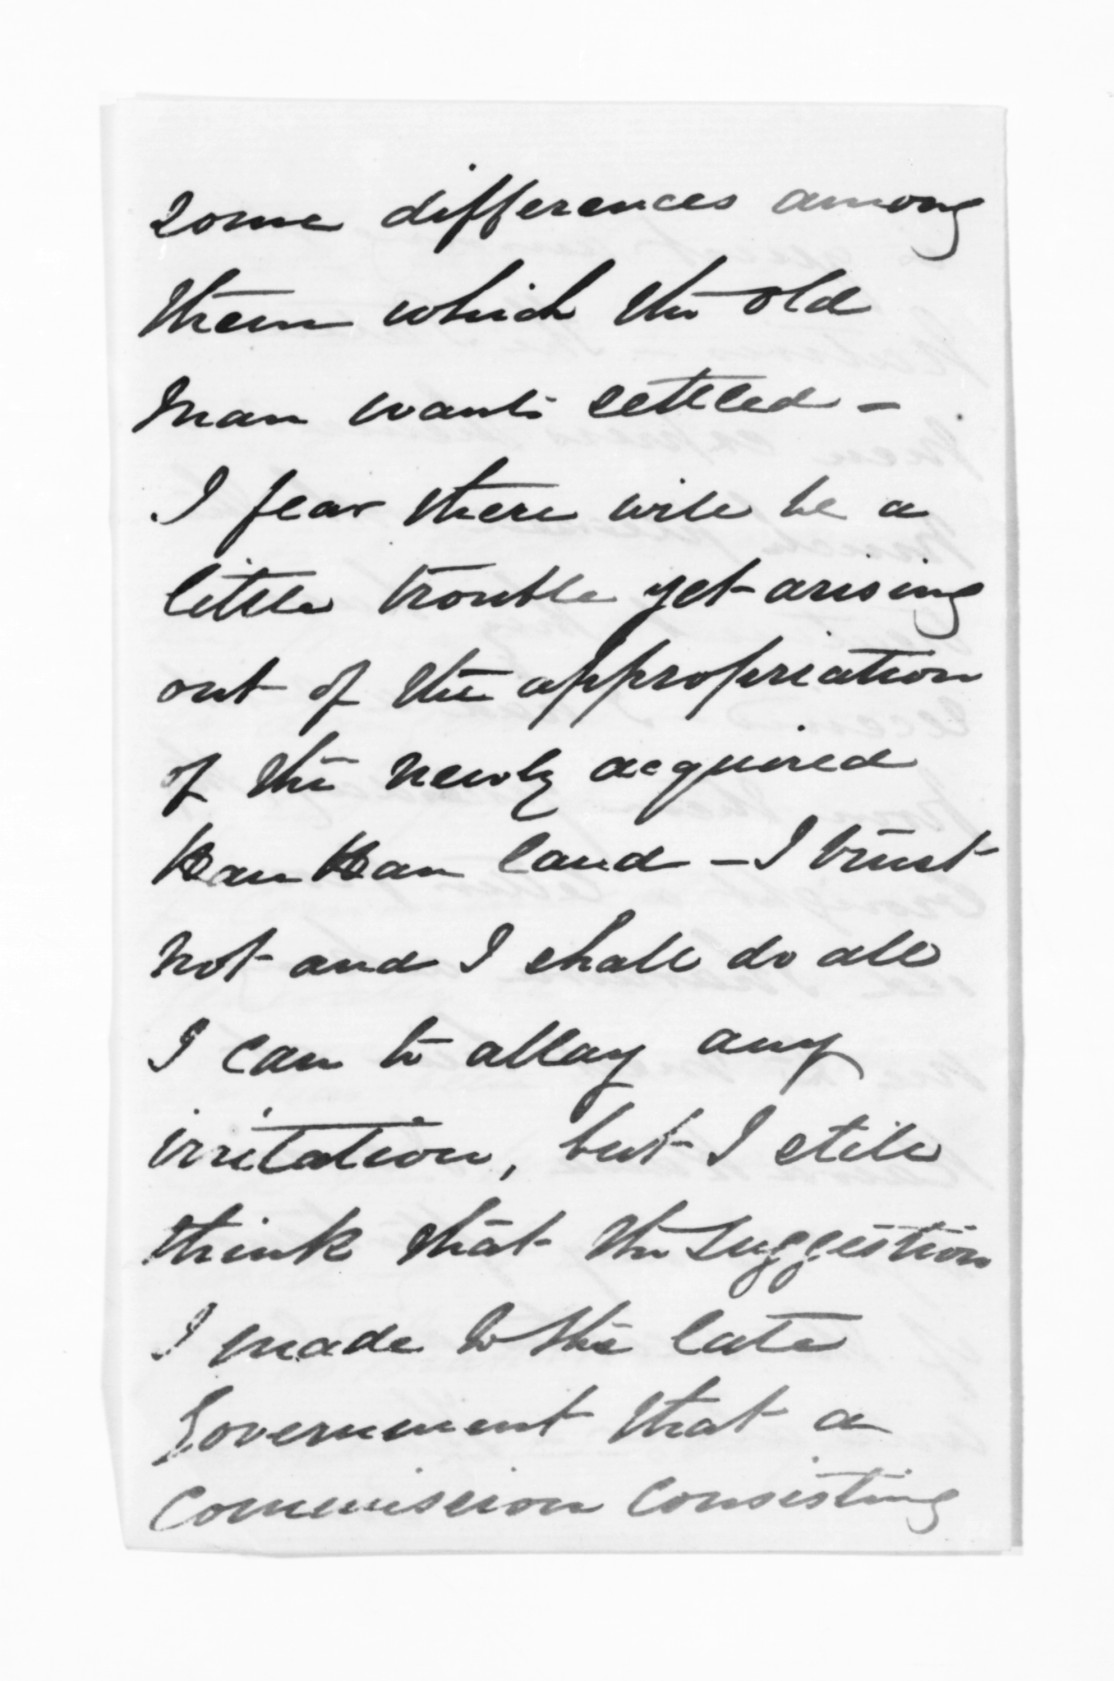 some differences among
them which the old
man wants settled -
I fear there will be a
little trouble yet arising
out of the appropriation
of the newly acquired
land - I trust
not and I shall do all
I can to allay any
irritation, but I still
think that the suggestion
I made to the late
Government that a
commission consisting